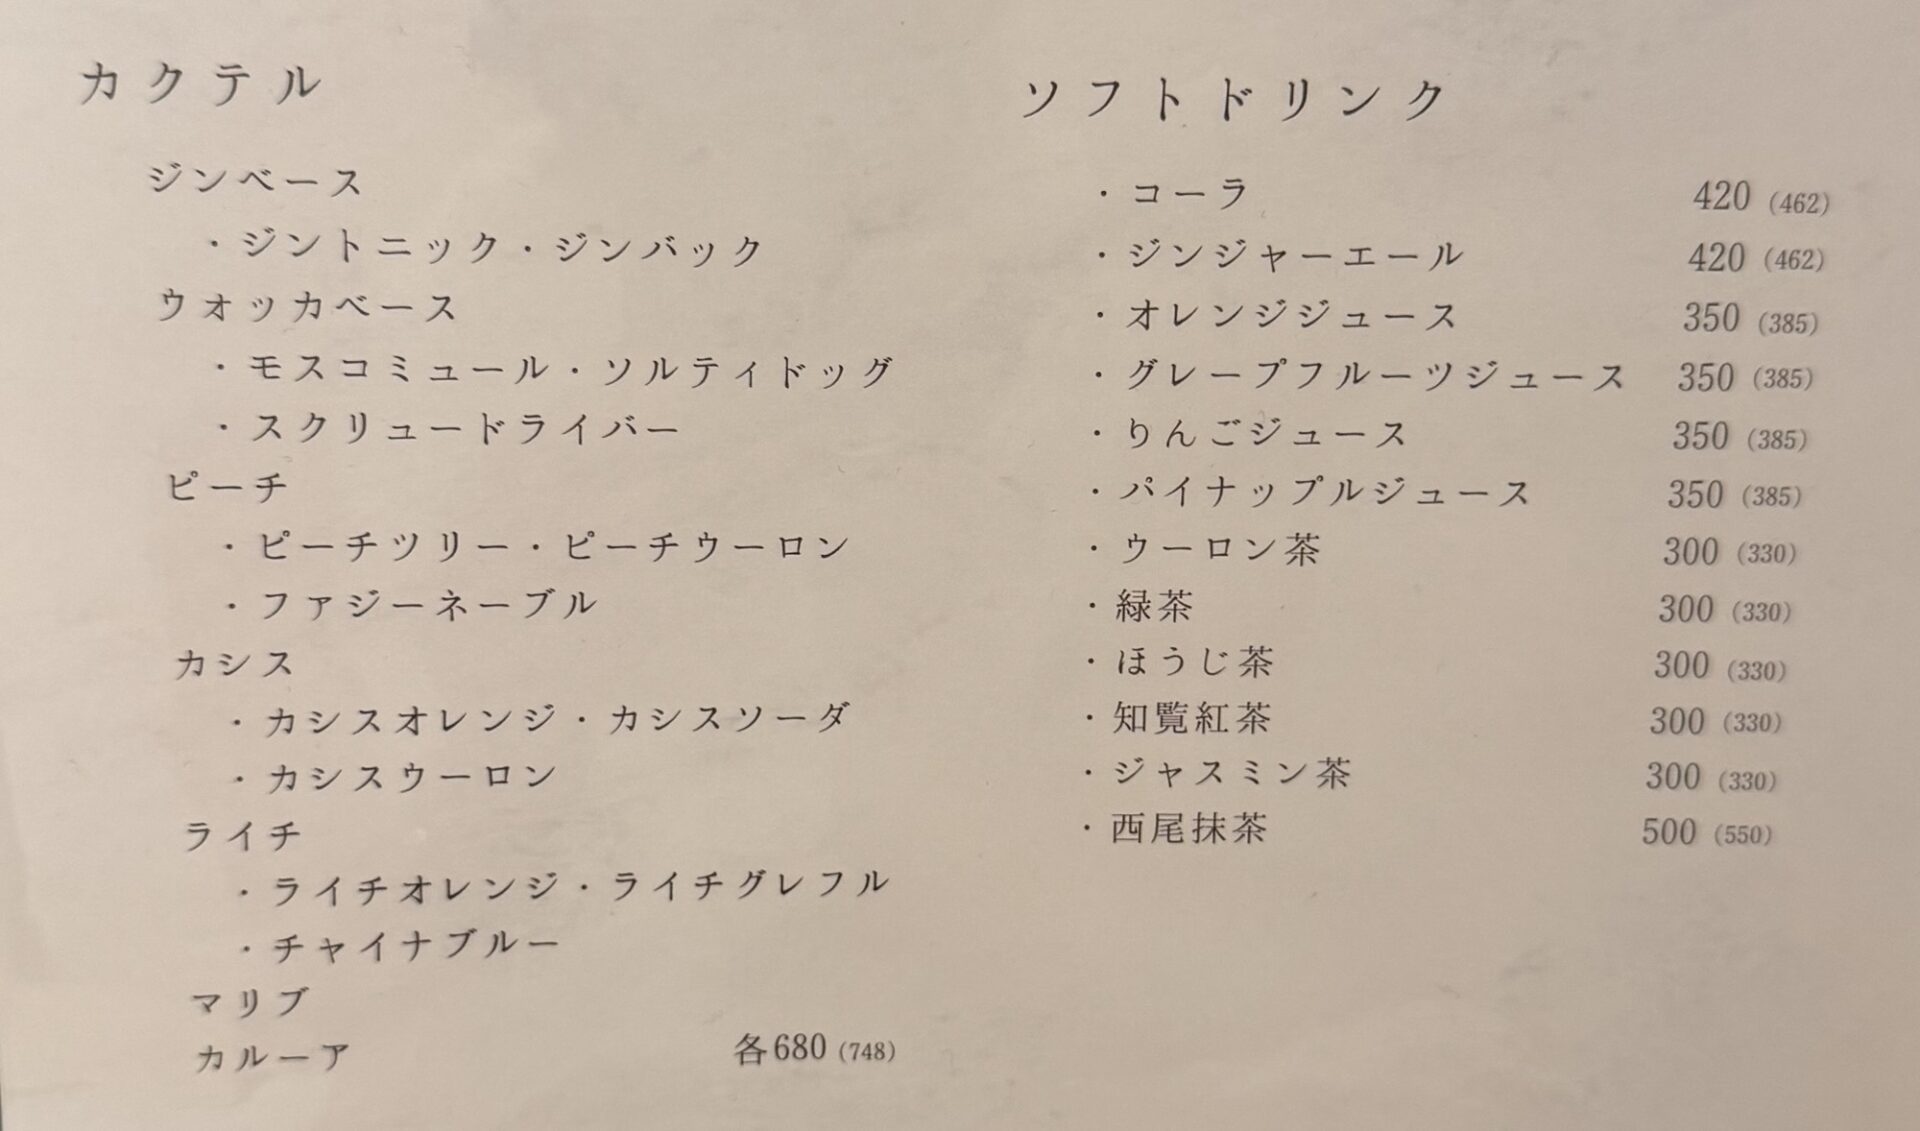 カクテル
ジンベース
・ジントニック・ジンバック
ウォッカベース
・モスコミュール・ソルティドッグ
・スクリュードライバー
ピーチ
・ピーチツリー・ピーチウーロン
・ファジーネーブル
カシス
・カシスオレンジ・カシスソーダ
・カシスウーロン
ライチ
・ライチオレンジ・ライチグレフル
・チャイナブルー
マリブ
カルーア 各680(748)
ソフトドリンク
・コーラ 420(462)
・ジンジャーエール 420(462)
・オレンジジュース 350(385)
・グレープフルーツジュース 350(385)
・りんごジュース 350(385)
・パイナップルジュース 350(385)
・ウーロン茶 300(330)
・緑茶 300(330)
・ほうじ茶 300(330)
・知覧紅茶 300(330)
・ジャスミン茶 300(330)
・西尾抹茶 500(550)